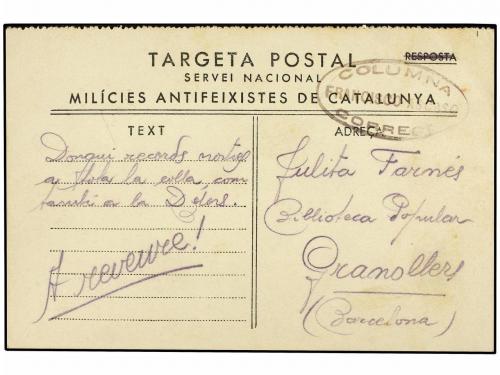 TARGETA POSTAL
RESPOSTA
SERVEI NACIONAL
MILÍCIES ANTIFEIXISTES DE CATALUNYA
COLUMNA
FRANCISCO ASCASO
CORREOS
TEXT
Dongui records nostres
a tota la colla, com
també a la Dolors.
A reveure!
ADREÇA
Julita Farnés
Biblioteca Popular
Granollers
(Barcelona)